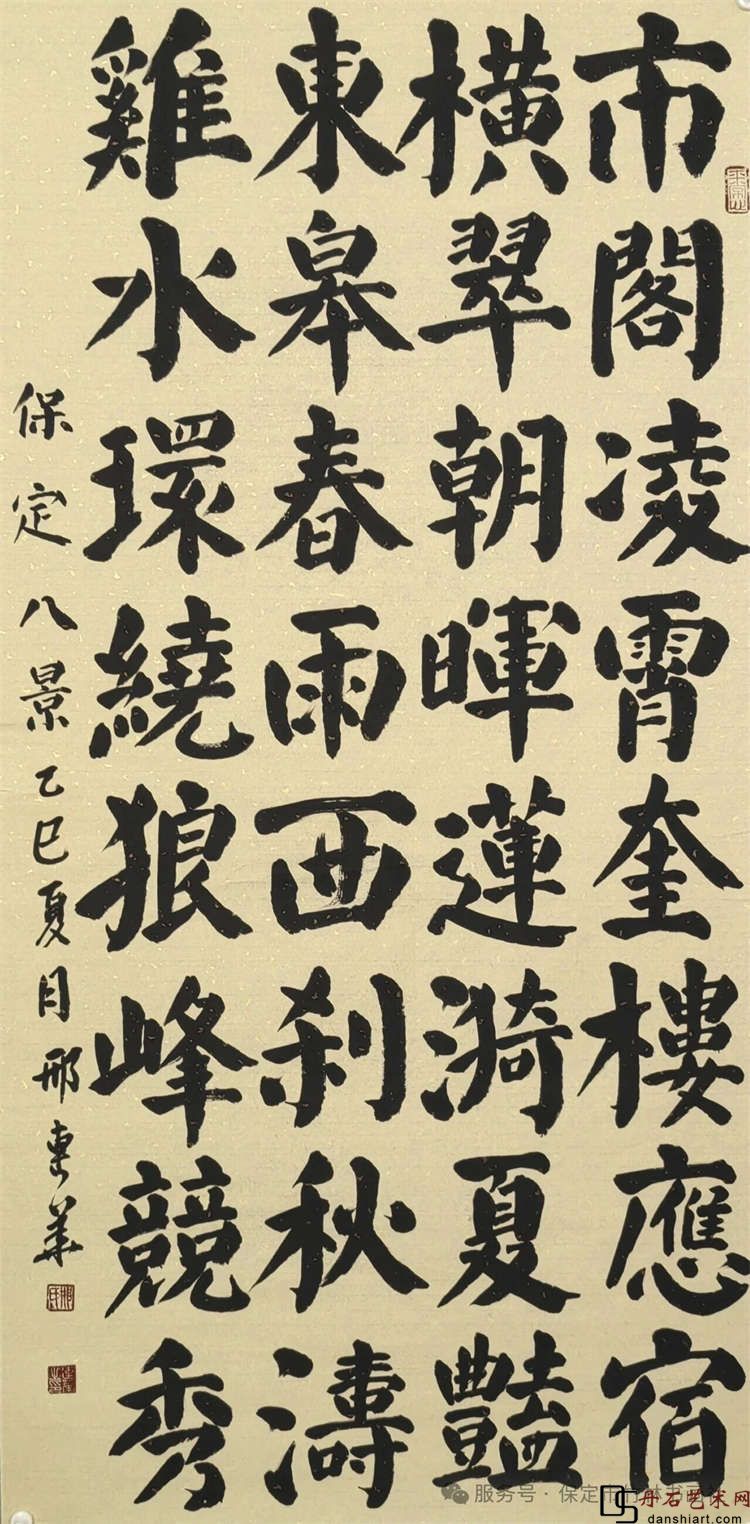 市閣凌霄奎樓應宿
橫翠朝暉蓮漪夏豔
東皋春雨西刹秋濤
雞水環繞狼峰競秀
保定八景乙巳夏月邢惠華
服务号·保定市竹林书画社
丹石艺术网
danshiart.com